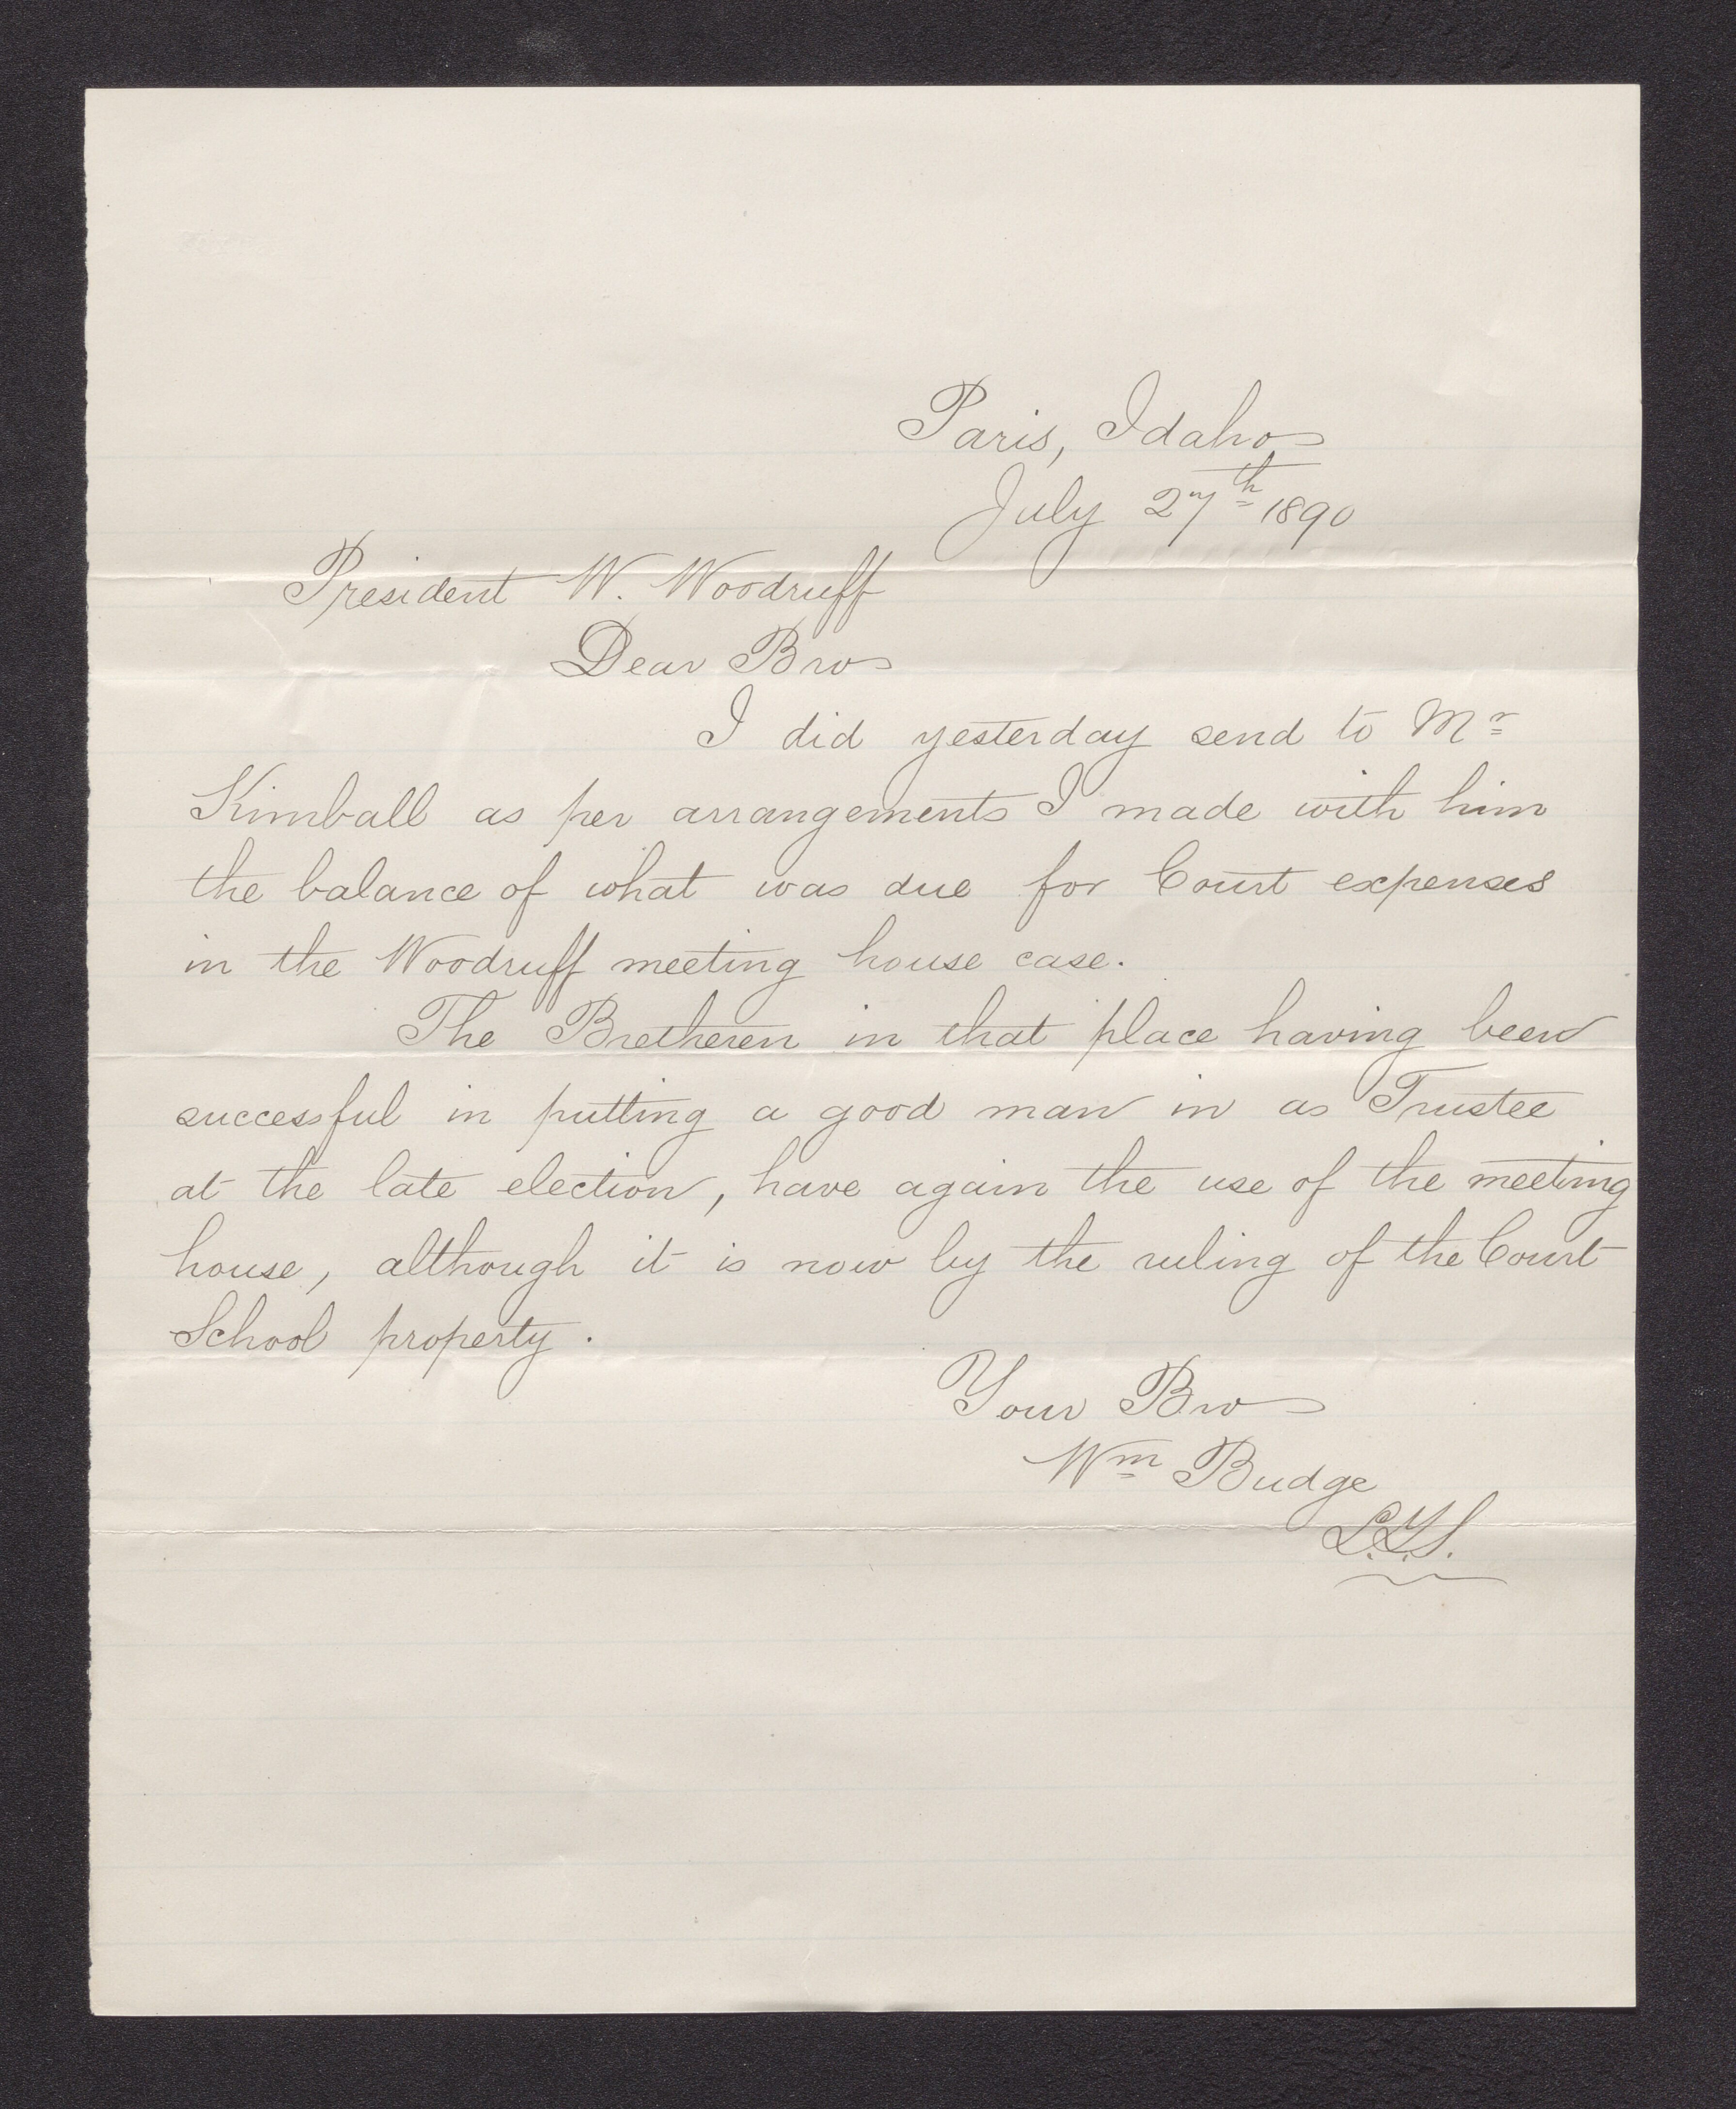 Paris, Idaho
July 27th 1890
President W. Woodruff
Dear Bro
I did yesterday send to Mr
Kimball as per arrangements I made with him
the balance of what was due for Court expenses
in the Woodruff meeting house case.
The Bretheren in that place having been
successful in putting a good man in as Trustee
at the late election, have again the use of the meeting
house, although it is now by the ruling of the Court
School property.
Your Bro
Wm Budge